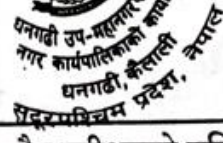 धनगढी उप-महानगर
नगर कार्यपालिकाको कार्या
धनगढी, कैलाली
सुदूरपश्चिम प्रदेश, नेपाल